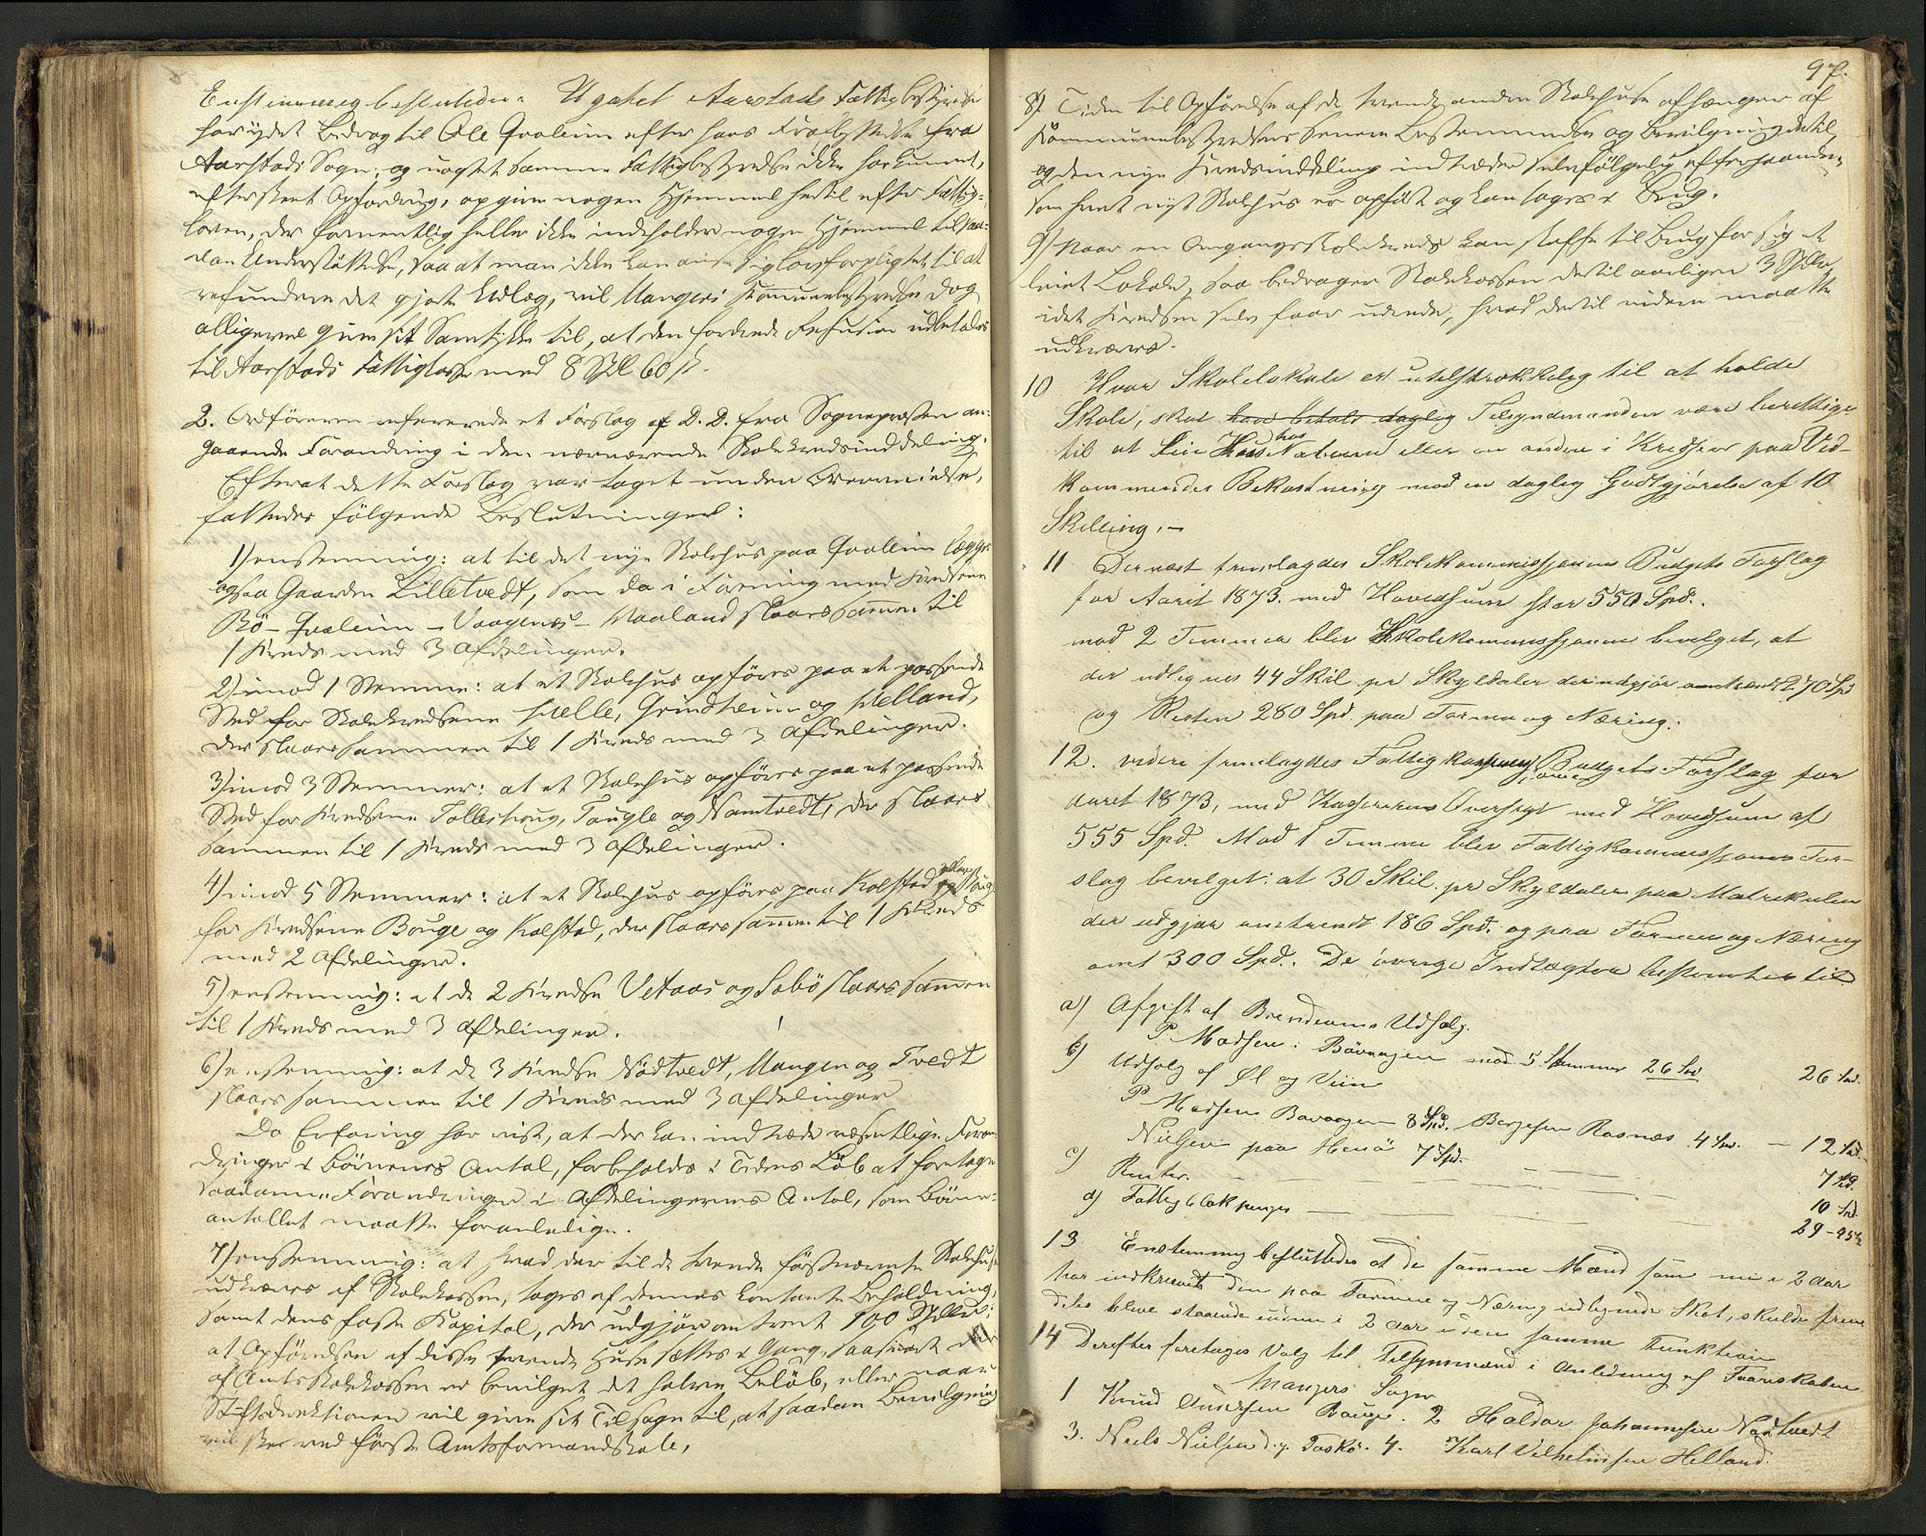 Enstemmig besluttedes: Uagtet Aarstads Fattigbestyrelse
har ydet Bidrag til Ole Qvaleim efter hans Fraflyttelse fra
Aarstads Sogn, og uagtet samme Fattigbestyrelse ikke har kunnet,
efter skeet Opfordring, opgive nogen Hjemmel hertil efter Fattig-
loven, der formentlig heller ikke indeholder nogen Hjemmel til saa-
dan Understøttelse, saa at man ikke kan anse sig lovforpligtet til at
refundere det gjorte Udlæg, vil Mangers Kommunebestyrelse dog
alligevel give sit Samtykke til, at den fordrede Refusion udbetales
til Aarstads Fattigkasse med 8 Spdl 60 s.
2. Ordføreren refererede et Forslag af D. D. fra Sognepresten an-
gaaende Forandring i den nærværende Skolekredsinddeling.
Efterat dette Forslag var taget under Overveielse,
fattedes følgende Beslutninger:
1) enstemmig: at til det nye Skolehus paa Qvalleim lægges
ogsaa Gaarden Lilletvedt, som da i Forening med Kredsene
Bö - Qvaleim - Vaagenes - Marland slaaes sammen til
1 Kreds med 3 Afdelinger.
2) imod 1 Stemme: at et Skolehus opføres paa et passende
Sted for Skolekredsene Helle, Grindheim og Helland,
der slaaes sammen til 1 Kreds med 3 Afdelinger.
3) imod 3 Stemmer: at et Skolehus opføres paa et passende
Sted for Kredsene Tolleshoug, Tougle og Namtvedt, der slaaes
sammen til 1 Kreds med 3 Afdelinger.
4) imod 5 Stemmer: at et Skolehus opføres paa Kolstad eller Bouge
for Kredsene Bouge og Kolstad, der slaaes sammen til 1 Kreds
med 2 Afdelinger.
5) enstemmig: at de 2 Kredse Vetaas og Sebö slaaes sammen
til 1 Kreds med 3 Afdelinger.
6) enstemmig: at de 3 Kredse Nødtvedt, Manger og Tvedt
slaaes sammen til 1 Kreds med 3 Afdelinger
Da Erfaring har vist, at der kan indtræde væsentlige Foran-
dringer i Børnenes Antal, forbeholdes i Tidens Løb at foretage
saadanne Forandringer i Afdelingernes Antal, som Børne-
antallet maatte foranledige.
7) enstemmig: at hvad der til de tvende førstnævnte Skolehuse
udkræves af Skolekassen, tages af dennes kontante Beholdning,
samt dens faste Kapital, der udgjør omtrent 100 Spdler;
at Opførelsen af disse tvende Huse sættes i Gang, saasnart der
af Amtsskolekassen er bevilget det halve Beløb, eller naar
Stiftsdirektionen vil give sit Tilsagn til, at saadan Bevilgning
vil ske ved første Amtsformandskab.
97.
8) Tiden til Opførelse af de tvende andre Skolehuse afhænger af
Kommunebestyrelsens senere Bestemmelse og Bevilgning dertil,
og den nye Kredsinddeling indtræder selvfølgelig efterhaanden
som hvert nyt Skolehus er opført og kan tages i Brug.
9) Naar en Omgangsskolekreds kan skaffe til Brug for sig et
leiet Lokale, saa bidrager Skolekassen dertil aarligen 3 Spdlr,
idet Kredsen selv faar udrede, hvad dertil videre maatte
udkræves.
10 Hvor Skolelokale er utilstrækkelig til at holde
Skole, skal Tilsynsmanden være berettiget
til at leie Hus hos Naboen eller en anden i Kredsen paa Ved-
kommendes Bekostning mod en daglig Godtgjørelse af 10
Skilling. -
11 Dernæst fremlagdes Skolekommissjonens Budgets Forslag
for Aaret 1873. med Hovedsum stor 550 Spd.
mod 2 Stemmer blev Skolekommissjonen bevilget, at
der udlignes 44 Skil. pr Skyldaler der udgjør omtrent 270 Spd
og Resten 280 Spd paa Formue og Næring.
12. videre fremlagdes Fattigkommissjonens Budgets Forslag for
Aaret 1873, med Kasserens Oversigt med Hovedsum af
555 Spd. Mod 1 Stemme blev Fattigkommissjonens For-
slag bevilget: at 30 Skil. pr Skyldaler paa Matrikulen
der udgjør omtrendt 186 Spd. og paa Formue og Næring
omt 300 Spd. De øvrige Indtægter bestemtes til
a) Afgift af Brændevins Udsalg.
P. Madsen i Bövaagen mod 5 Stemmer 26 Spd 26 Spd.
b) Udsalg af Øl og Viin
P Madsen Bovaagen 8 Spd. Berge Rosnæs 4 Spd. — 12 Spd.
Nielsen paa Hernø 7 Spd. 7 Spd.
c) Renter. 10 Spd.
d) Fattigblokpenge 29-95½
13 Enstemmig besluttedes at de samme Mænd som nu i 2 aar
har indkrevet den paa Formue og Næring udlignede Skat, skulde frem-
deles blive staaende endnu i 2 aar i den samme Funktion
14 Derefter foretoges Valg til Tilsynsmænd i Anledning af
Mangers Sogn
1 Knud Andersen Bouge. 2 Haldor Johannesen Nødtvedt
3. Niels Nielsen Toskø. 4. Karl Vilhelmsen Helland.